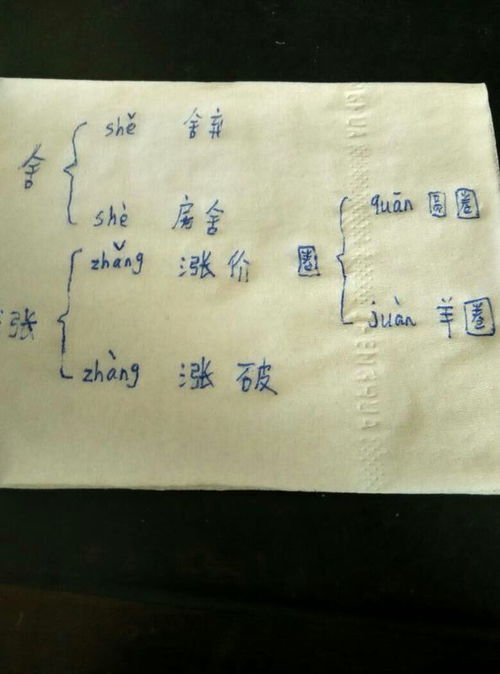 舍
shě 舍弃
shè 房舍
涨
zhǎng 涨价
zhàng 涨破
圈
quān 圆圈
juàn 羊圈